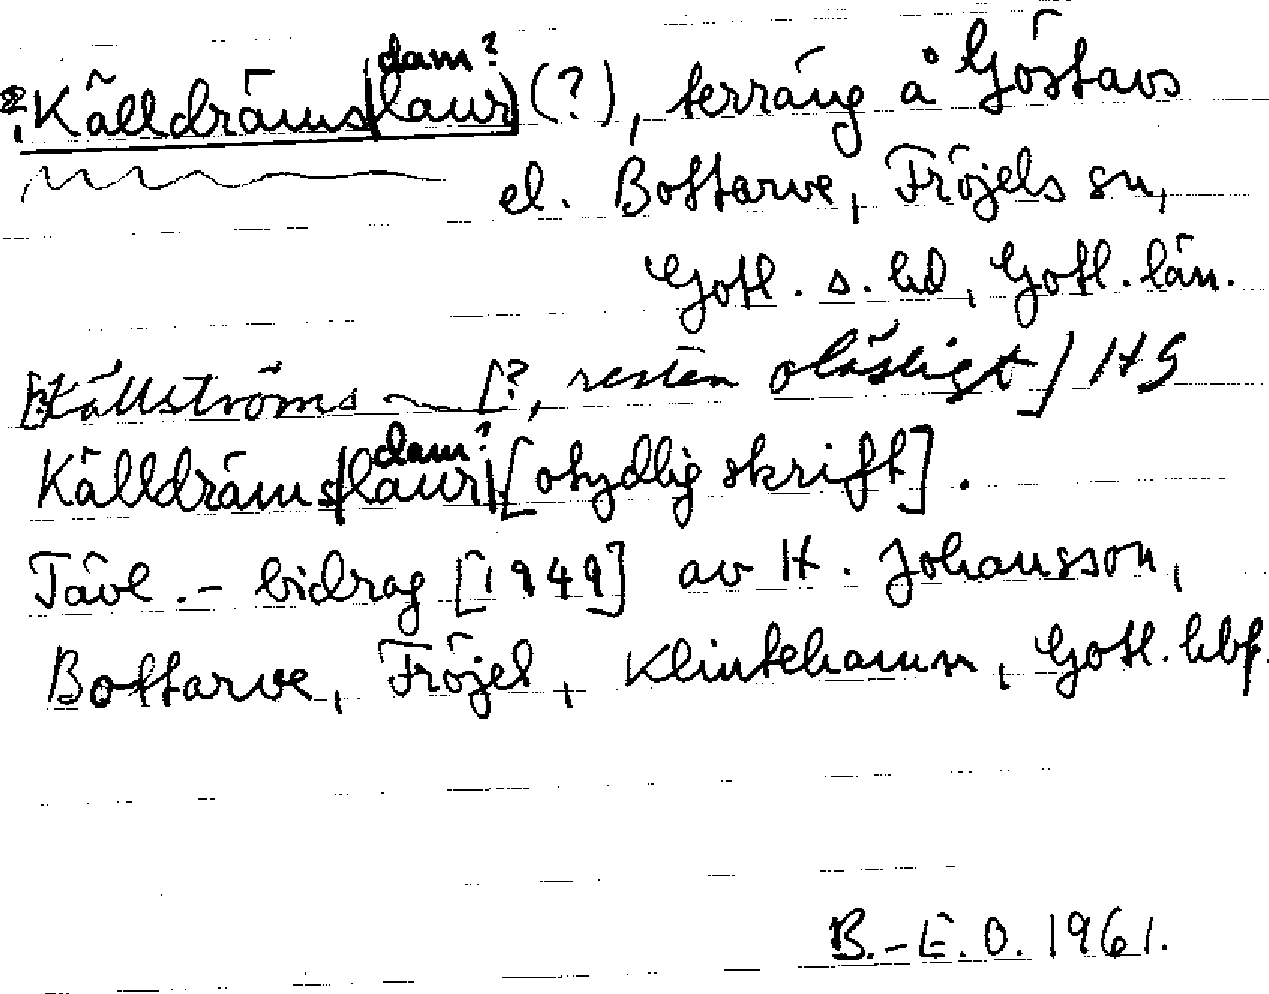 dam?
? Källdräms|laur| (?), terräng å Göstavs
el. Bottarve, Fröjels sn,
Gotl. s. hd, Gotl. län.
[Källströms [?, resten oläsligt] HG
dam?
Källdräms|laur| [otydlig skrift].
Tävl.- bidrag [1949] av H. Johansson,
Bottarve, Fröjel, Klintehamn, Gotl. hbf.
B.-E.O. 1961.